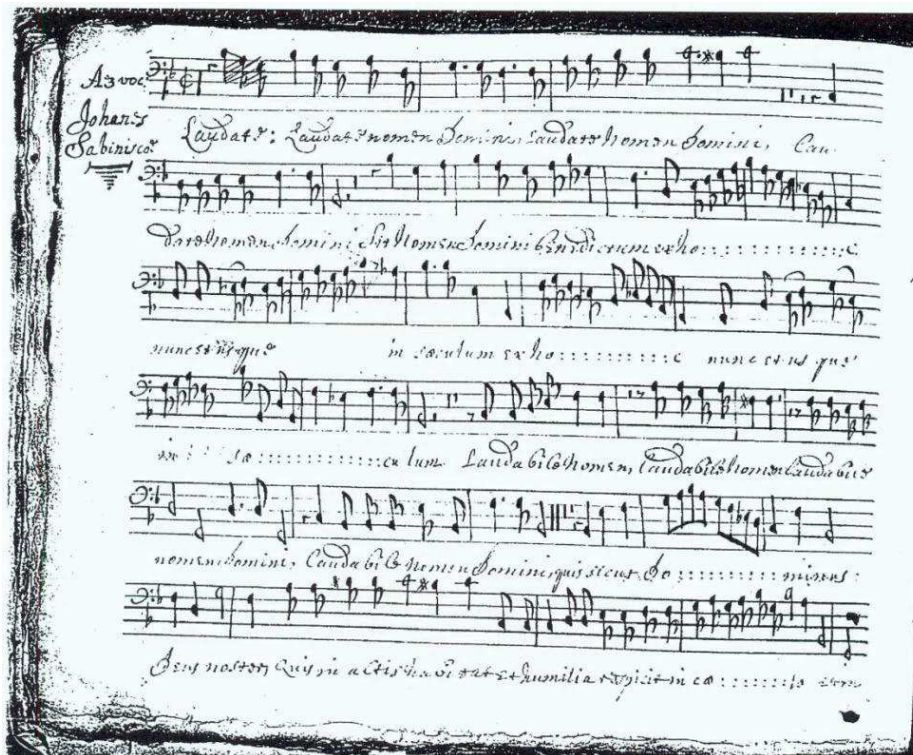 A 3 voc
Johanes
Sabinisco
Laudate: Laudate nomen Domini, Laudate Nomen Domini, Lau
date Nomen Domini Sit Nomen Domini benedictum ex ho : : : : : : : : : : : c
nunc et us que in sæculum ex ho : : : : : : : : : c nunc et us que
in : : sæ : : : : : : : : : : : : culum Laudabile Nomen, Laudabile nomen Laudabile
nomen Domini, Laudabile Nomen Domini, quis sicut Do : : : : : : : : minus :
Deus noster, Quis in altis habitat et humilia respicit in cæ : : : : : : : lo